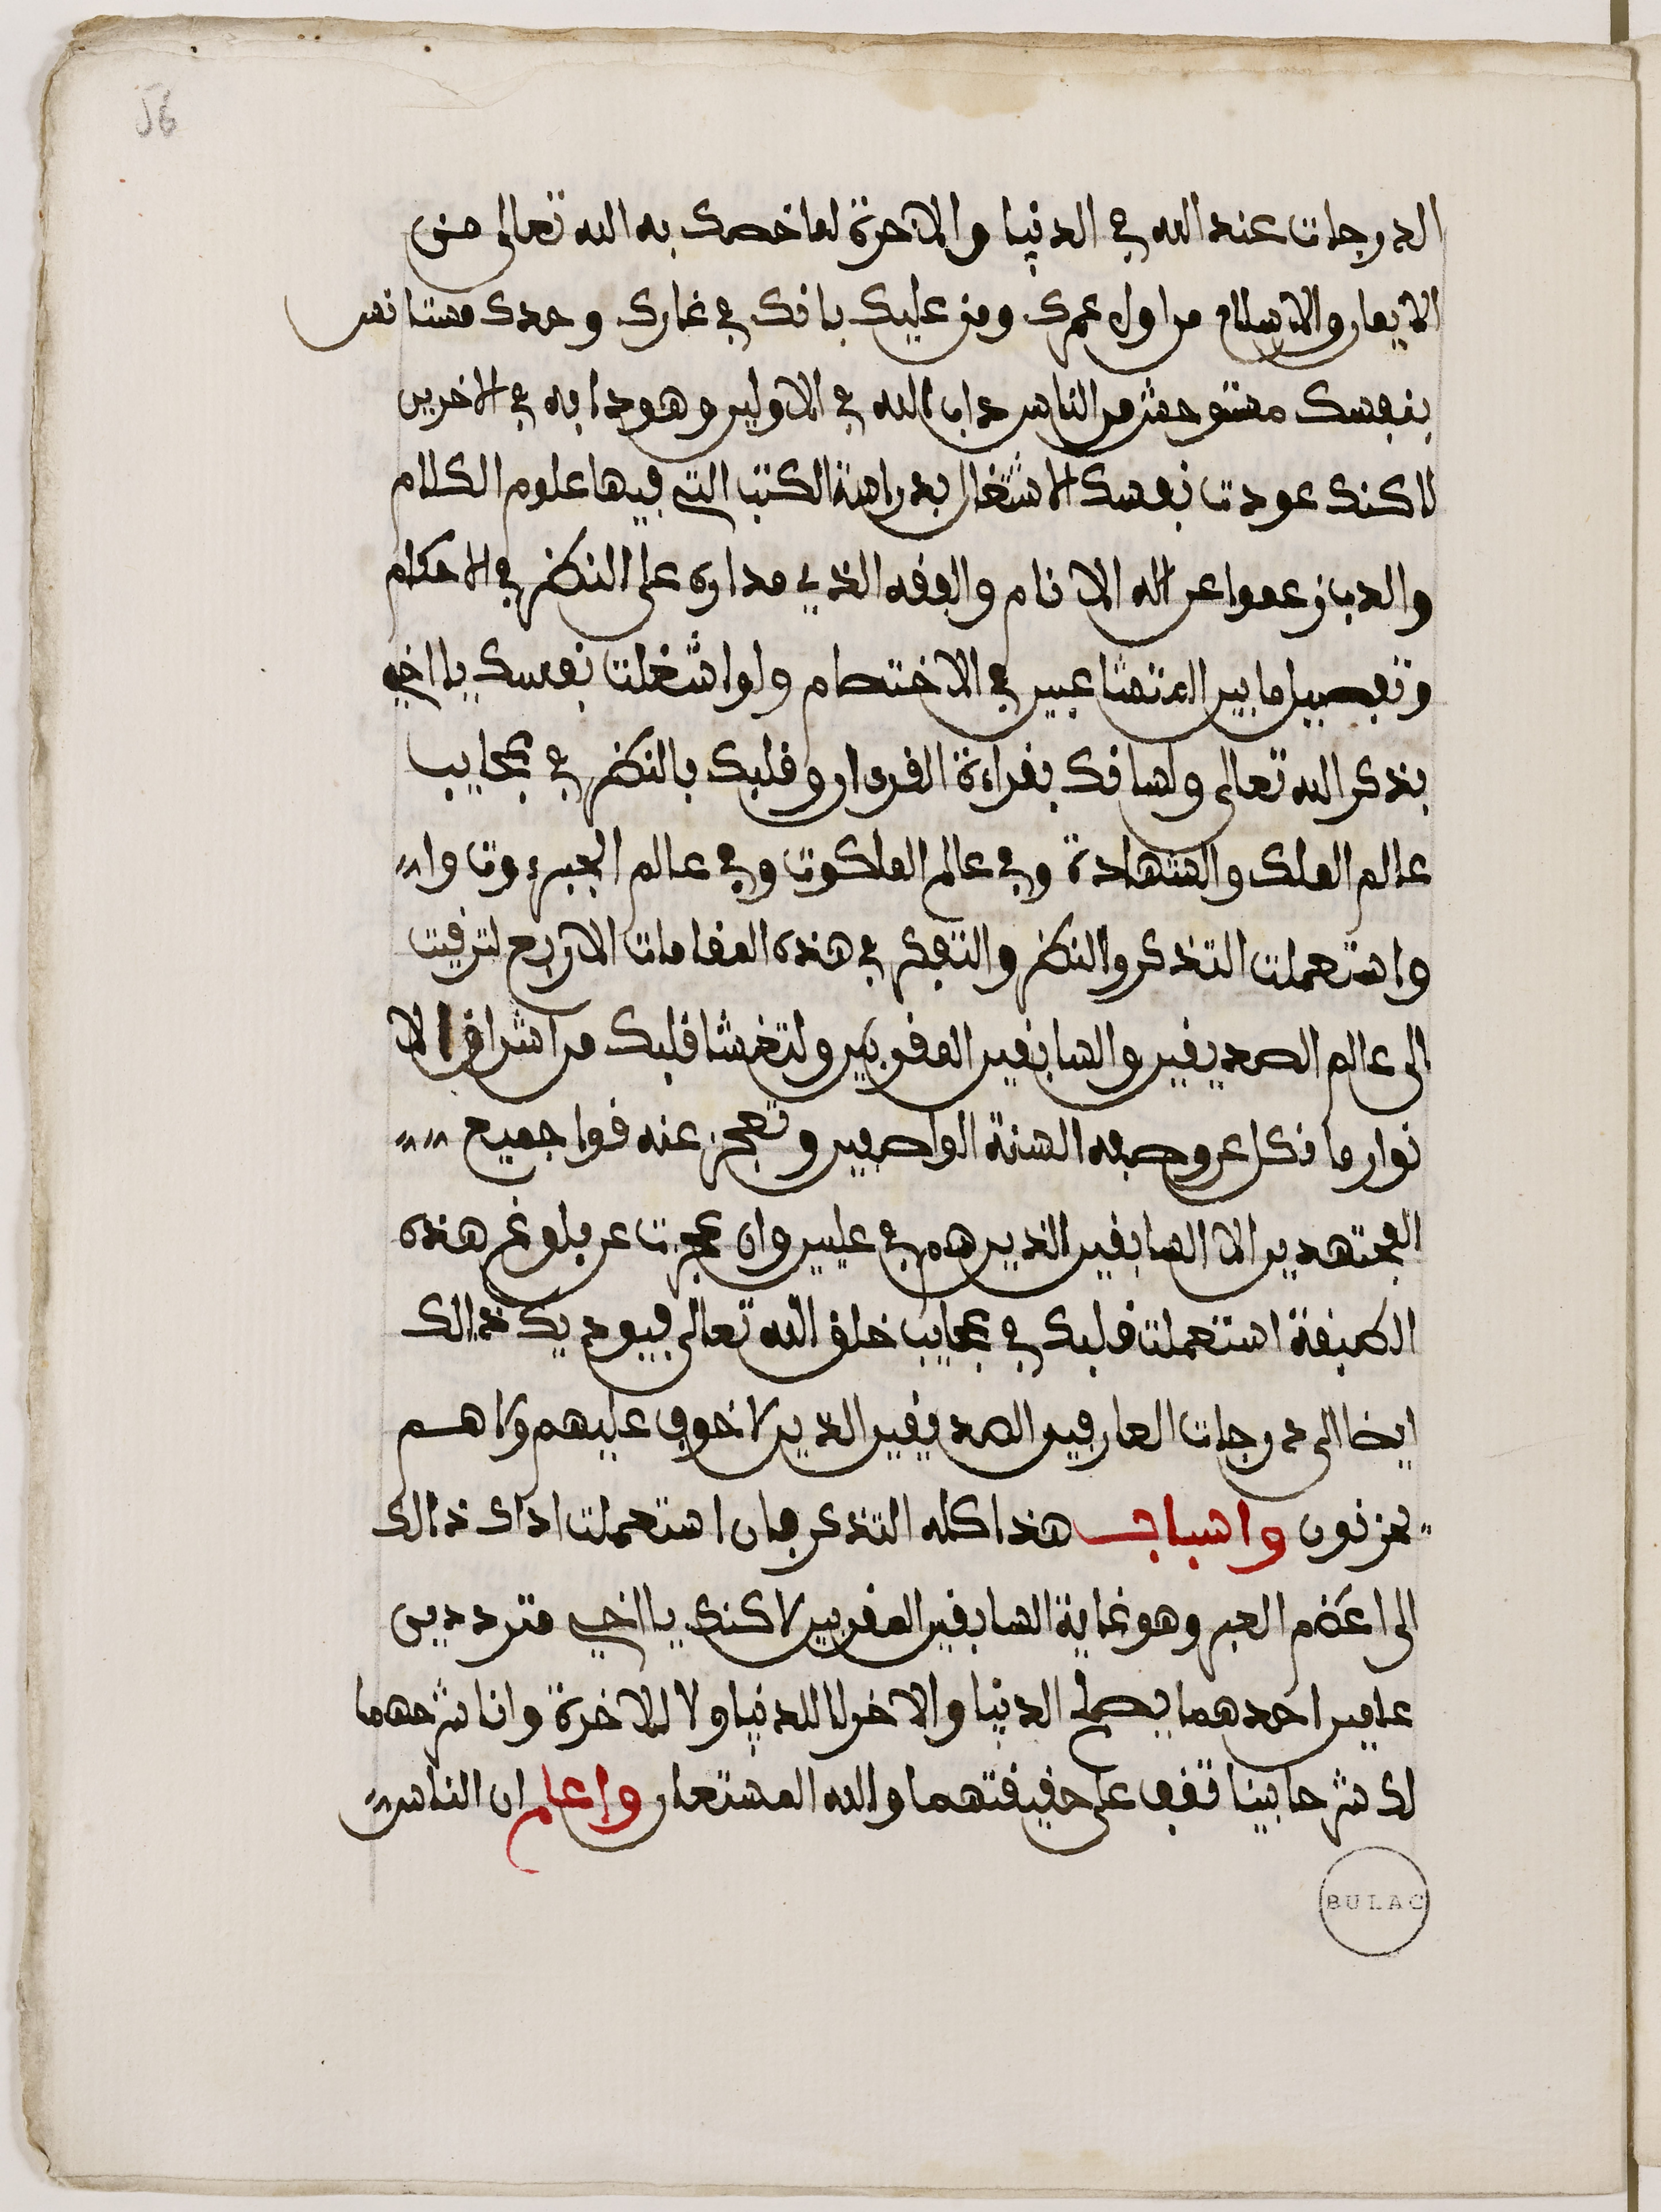 56
الدرجات عند الله في الدنيا والاخرة لما خصك به الله تعالى من
الايمان والاسلام من اول عمرك ومن عليك بانك في غارك وحدك مستانس
بنفسك مستوحش من الناس داب الله في الاولين وهو دابه في الاخرين
لاكنك عودت نفسك الاشتغال بدراسة الكتب التي فيها علوم الكلام
والذب زعموا عن اله الانام والفقه الذي مداره على النظر في الاحكام
وتفصيل ما بين المتشاعبين في الاختصام ولو اشغلت نفسك يا اخي
بذكر الله تعالى ولسانك بقراءة القرءان وقلبك بالنظر في عجايب
عالم الملك والشهادة وفي عالم الملكوت وفي عالم الجبروت وا
واستعملت التذكر والنظر والتفكر في هذه المقامات الاربع لترقيت
الى عالم الصديقين والسابقين المقربين ولتغشا قلبك من اشراق الا
نوار ما تكل عن وصفه السنة الواصفين وتعجز عنه قوا جميع
المجتهدين الا السابقين الذين هم في عليين وان عجزت عن بلوغ هذه
الطبقة استعملت قلبك في عجايب خلق الله تعالى فيوديك ذالك
ايضا الى درجات العارفين الصديقين الذين لا خوف عليهم ولا هم
يحزنون واسباب هذا كله التذكر فان استعملت اداك ذالك
الى اعظم العبر وهو غاية السابقين المقربين لاكنك يا اخي متردد بين
علمين احدهما يصلح الدنيا والاخر لا للدنيا ولا للاخرة وانا شرحهما
لك شرحا بينا تقف على حقيقتهما والله المستعان واعلم ان الناس
BULAC